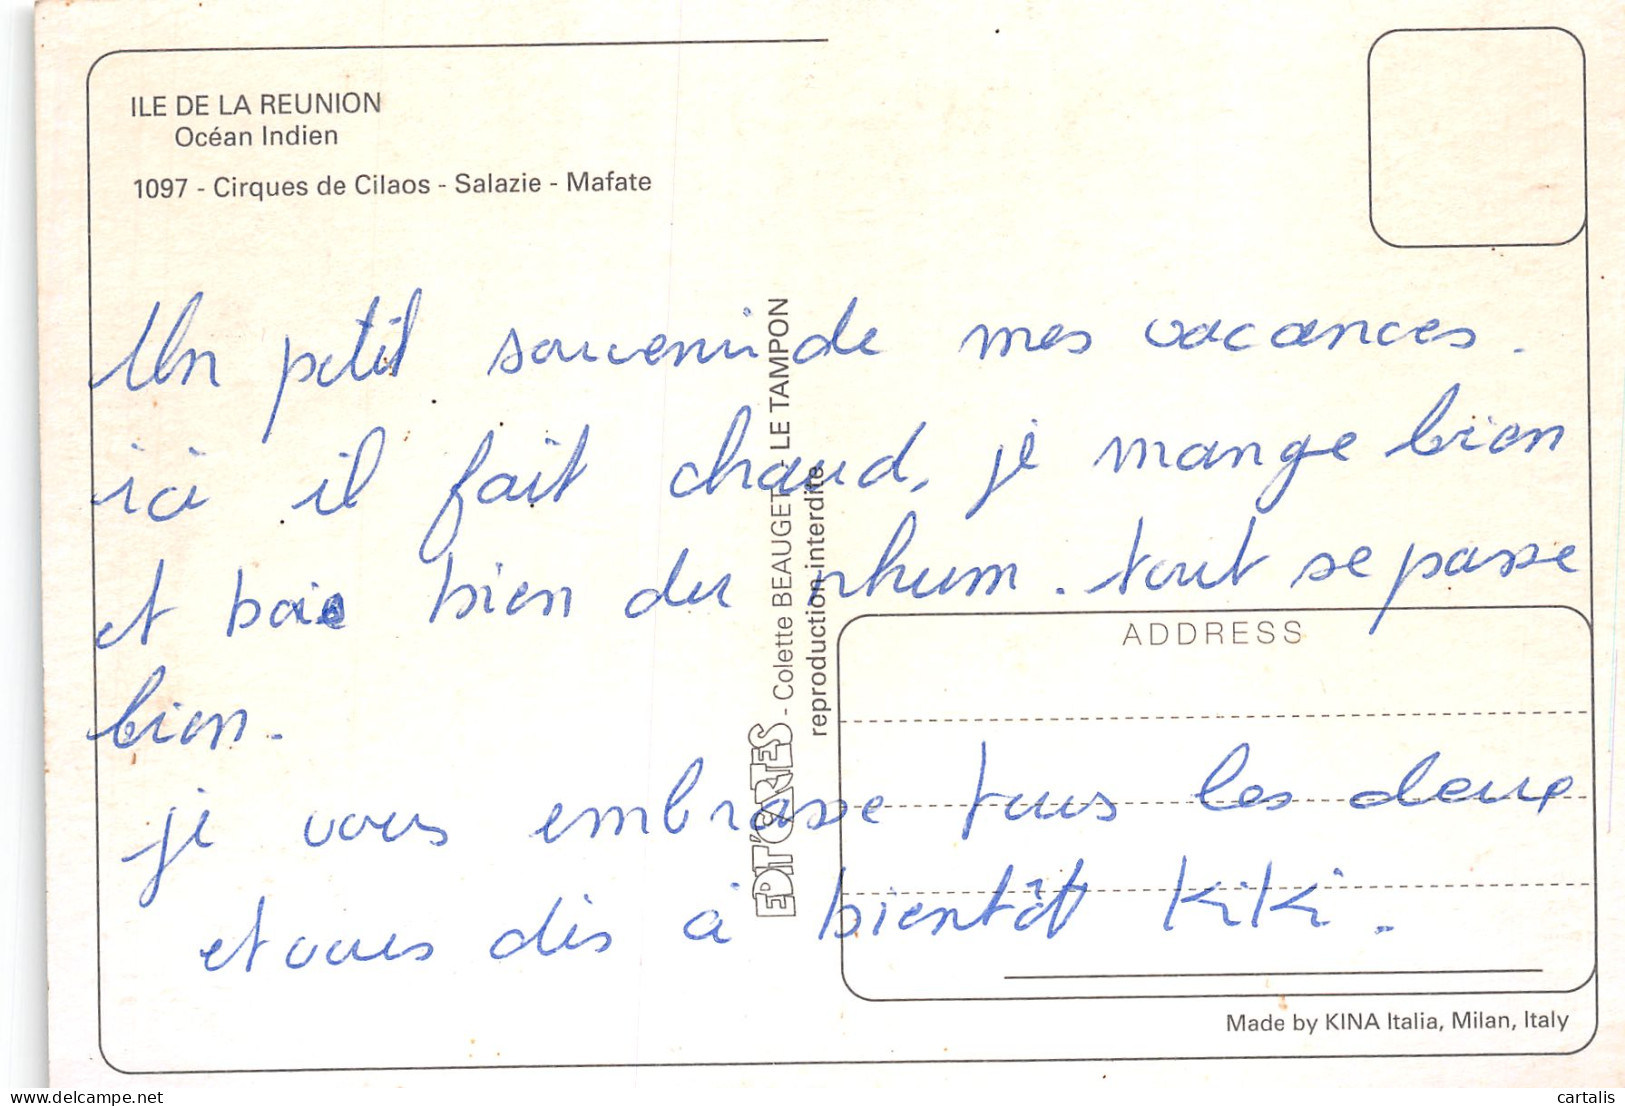 ILE DE LA REUNION
Océan Indien
1097 - Cirques de Cilaos - Salazie - Mafate
Un petit souvenir de mes vacances.
ici il fait chaud, je mange bien
et boie bien du rhum. tout se passe
bien.
je vous embrasse tous les deux
et vous dis à bientôt Kiki.
EDIT'CARTES - Colette BEAUGET - LE TAMPON
reproduction interdite
ADDRESS
Made by KINA Italia, Milan, Italy
delcampe.net
cartalis